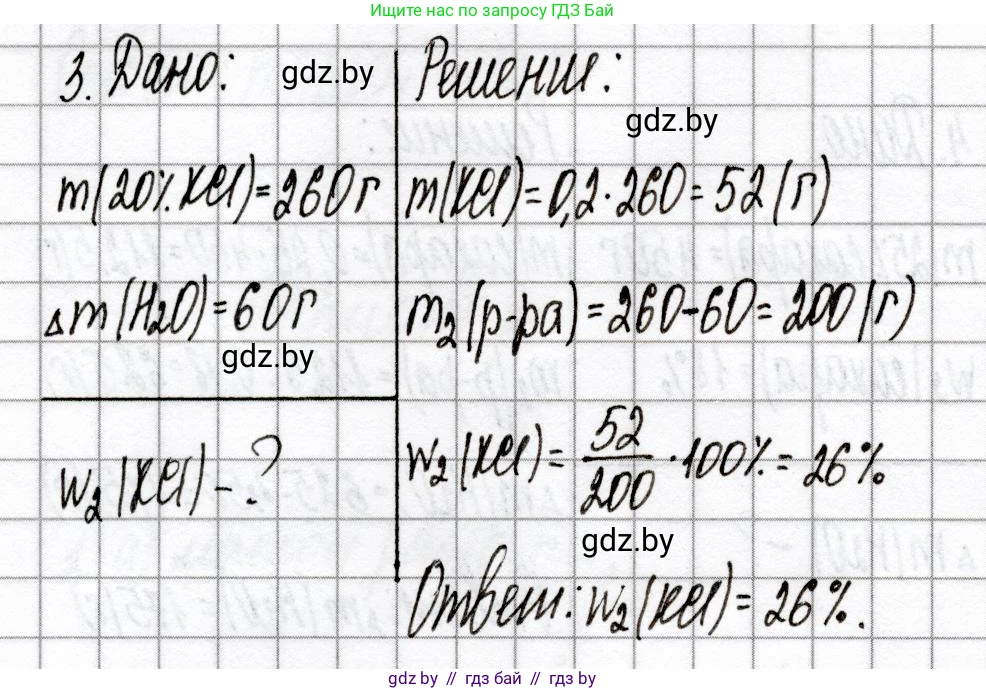 Ищите нас по запросу ГДЗ Бай
3. Дано:
gdz.by
m(20% KCl) = 260 г
Δm(H2O) = 60 г
gdz.by
w2(KCl) - ?
Решение:
gdz.by
m(KCl) = 0,2 · 260 = 52 (г)
m2(р-ра) = 260 - 60 = 200 (г)
w2(KCl) = 52/200 · 100% = 26%
gdz.by
Ответ: w2(KCl) = 26%.
gdz.by // гдз бай // гдз by